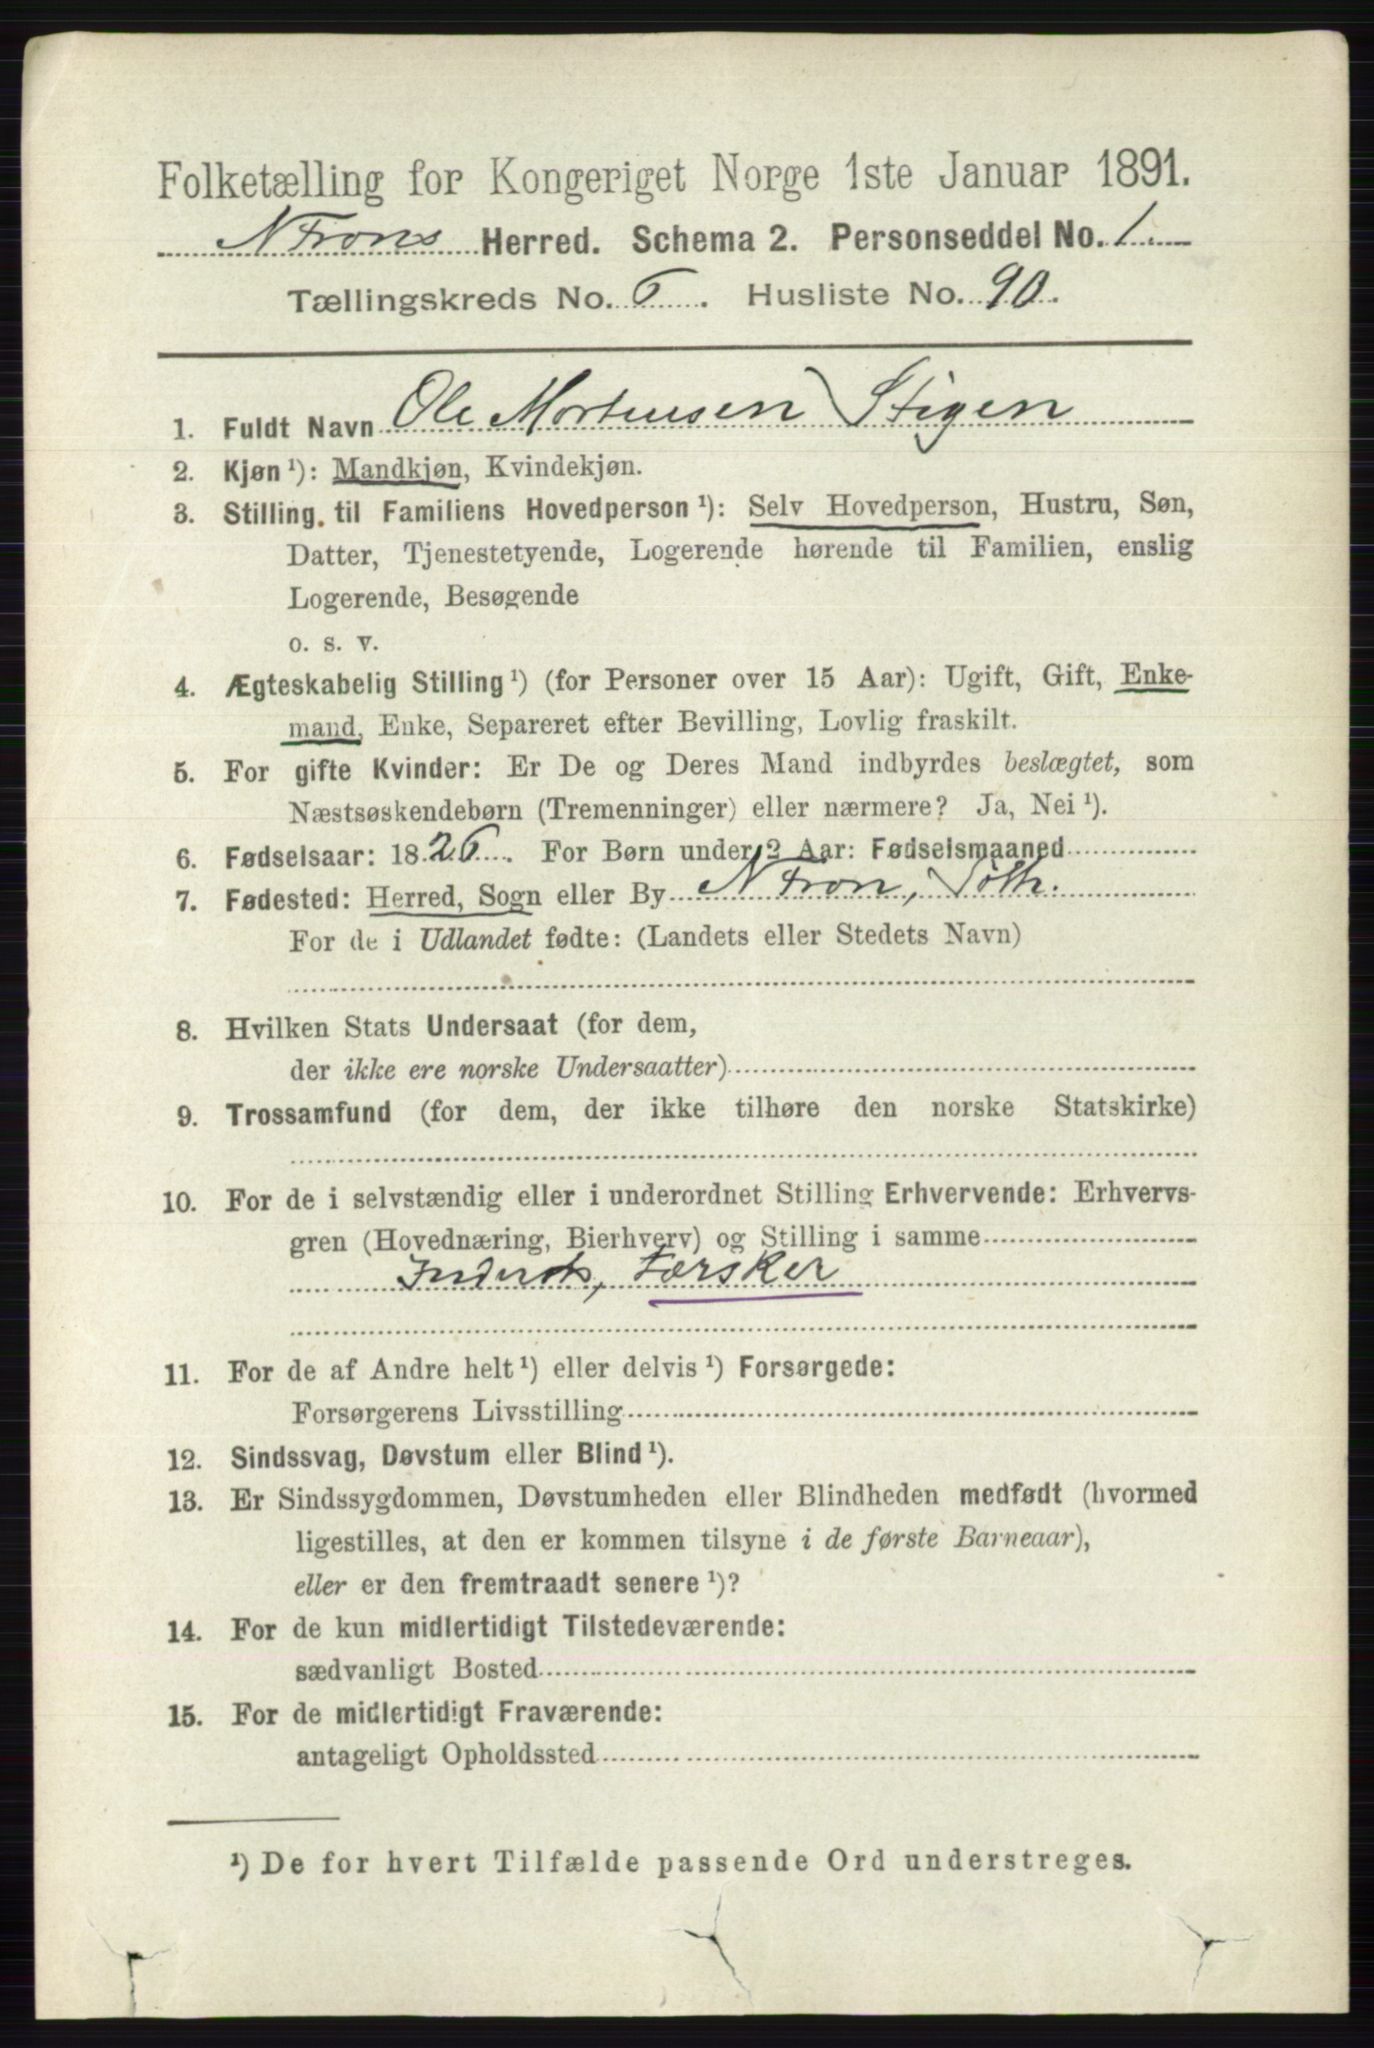 Folketælling for Kongeriget Norge 1ste Januar 1891.
N Frons Herred. Schema 2. Personseddel No. 1
Tællingskreds No. 6. Husliste No. 90.
1. Fuldt Navn Ole Mortensen Stigen
2. Kjøn ¹): Mandkjøn, Kvindekjøn.
3. Stilling til Familiens Hovedperson ¹): Selv Hovedperson, Hustru, Søn,
Datter, Tjenestetyende, Logerende hørende til Familien, enslig
Logerende, Besøgende
o. s. v.
4. Ægteskabelig Stilling ¹) (for Personer over 15 Aar): Ugift, Gift, Enke-
mand, Enke, Separeret efter Bevilling, Lovlig fraskilt.
5. For gifte Kvinder: Er De og Deres Mand indbyrdes beslægtet, som
Næstsøskendebørn (Tremenninger) eller nærmere? Ja, Nei ¹).
6. Fødselsaar: 1826. For Børn under 2 Aar: Fødselsmaaned
7. Fødested: Herred, Sogn eller By N Fron, Sølh.
For de i Udlandet fødte: (Landets eller Stedets Navn)
8. Hvilken Stats Undersaat (for dem,
der ikke ere norske Undersaatter)
9. Trossamfund (for dem, der ikke tilhøre den norske Statskirke)
10. For de i selvstændig eller i underordnet Stilling Erhvervende: Erhvervs-
gren (Hovednæring, Bierhverv) og Stilling i samme
Inderst, Færsker
11. For de af Andre helt ¹) eller delvis ¹) Forsørgede:
Forsørgerens Livsstilling
12. Sindssvag, Døvstum eller Blind ¹).
13. Er Sindssygdommen, Døvstumheden eller Blindheden medfødt (hvormed
ligestilles, at den er kommen tilsyne i de første Barneaar),
eller er den fremtraadt senere ¹)?
14. For de kun midlertidigt Tilstedeværende:
sædvanligt Bosted
15. For de midlertidigt Fraværende:
antageligt Opholdssted
¹) De for hvert Tilfælde passende Ord understreges.